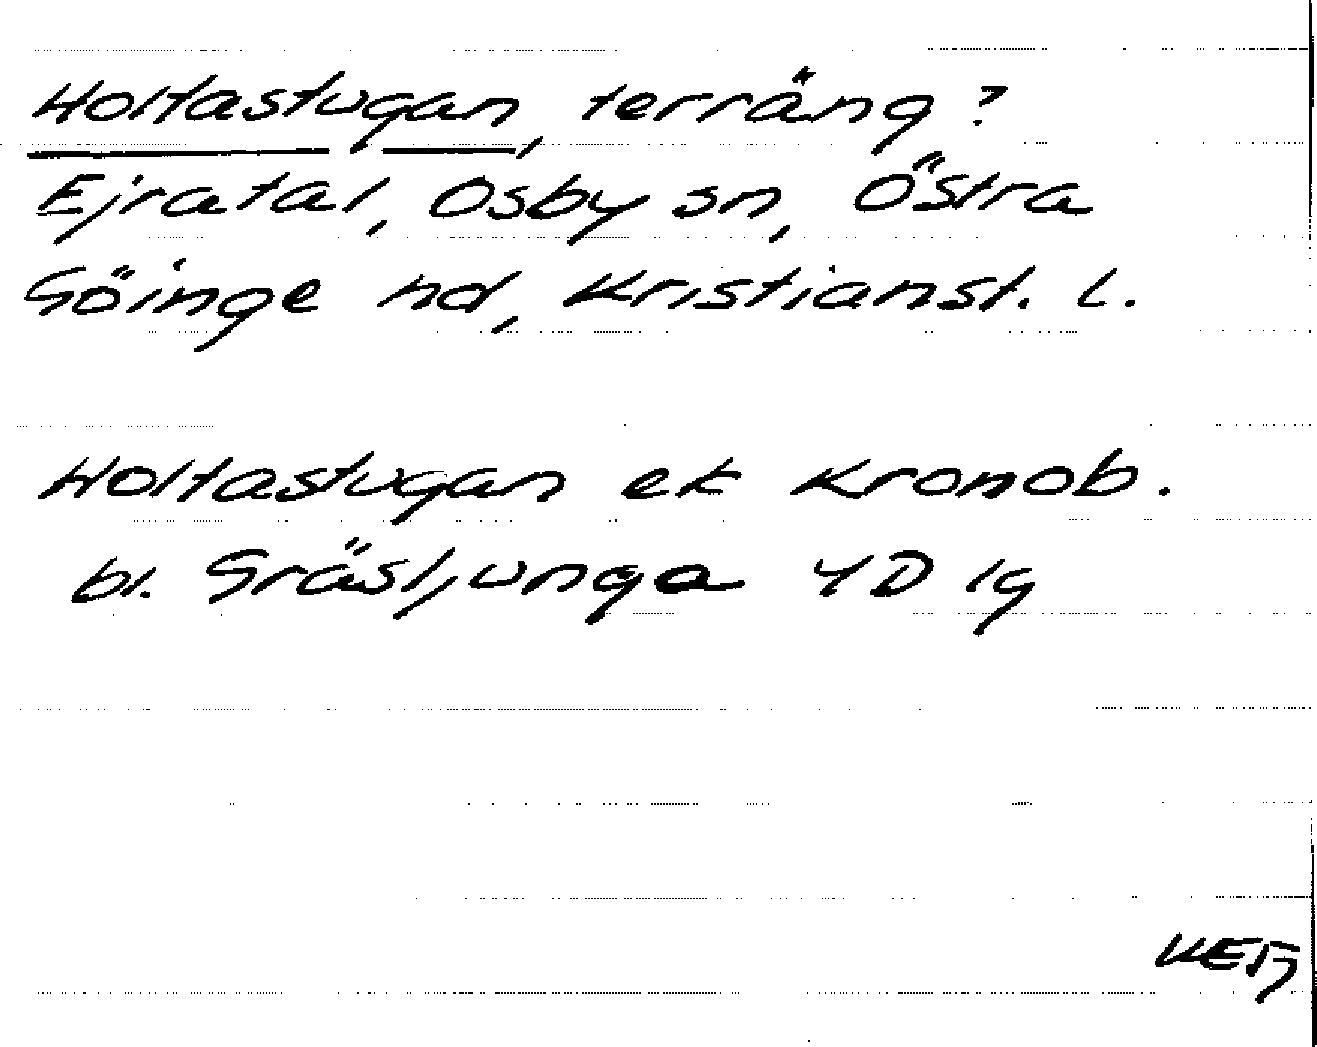 Holtastugan, terräng?
Ejratal, Osby sn, Östra
Göinge hd, Kristianst. l.
Holtastugan ek Kronob.
bl. Gräsljunga 4D lg